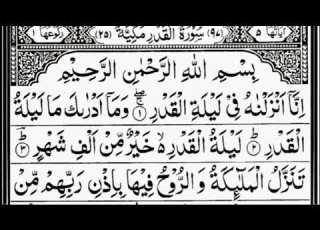 اٰیَاتُهَا ٥ (٩٧) سُوْرَةُ الْقَدْرِ مَكِّیَّةٌ (٢٥) رُكُوْعُهَا ١
بِسْمِ اللّٰهِ الرَّحْمٰنِ الرَّحِیْمِ
اِنَّاۤ اَنْزَلْنٰهُ فِیْ لَیْلَةِ الْقَدْرِ ۚۖ ١ وَمَاۤ اَدْرٰىكَ مَا لَیْلَةُ
الْقَدْرِ ؕ ٢ لَیْلَةُ الْقَدْرِ ەۙ خَیْرٌ مِّنْ اَلْفِ شَهْرٍ ؕ ٣
تَنَزَّلُ الْمَلٰٓىِٕكَةُ وَالرُّوْحُ فِیْهَا بِاِذْنِ رَبِّهِمْ مِّنْ